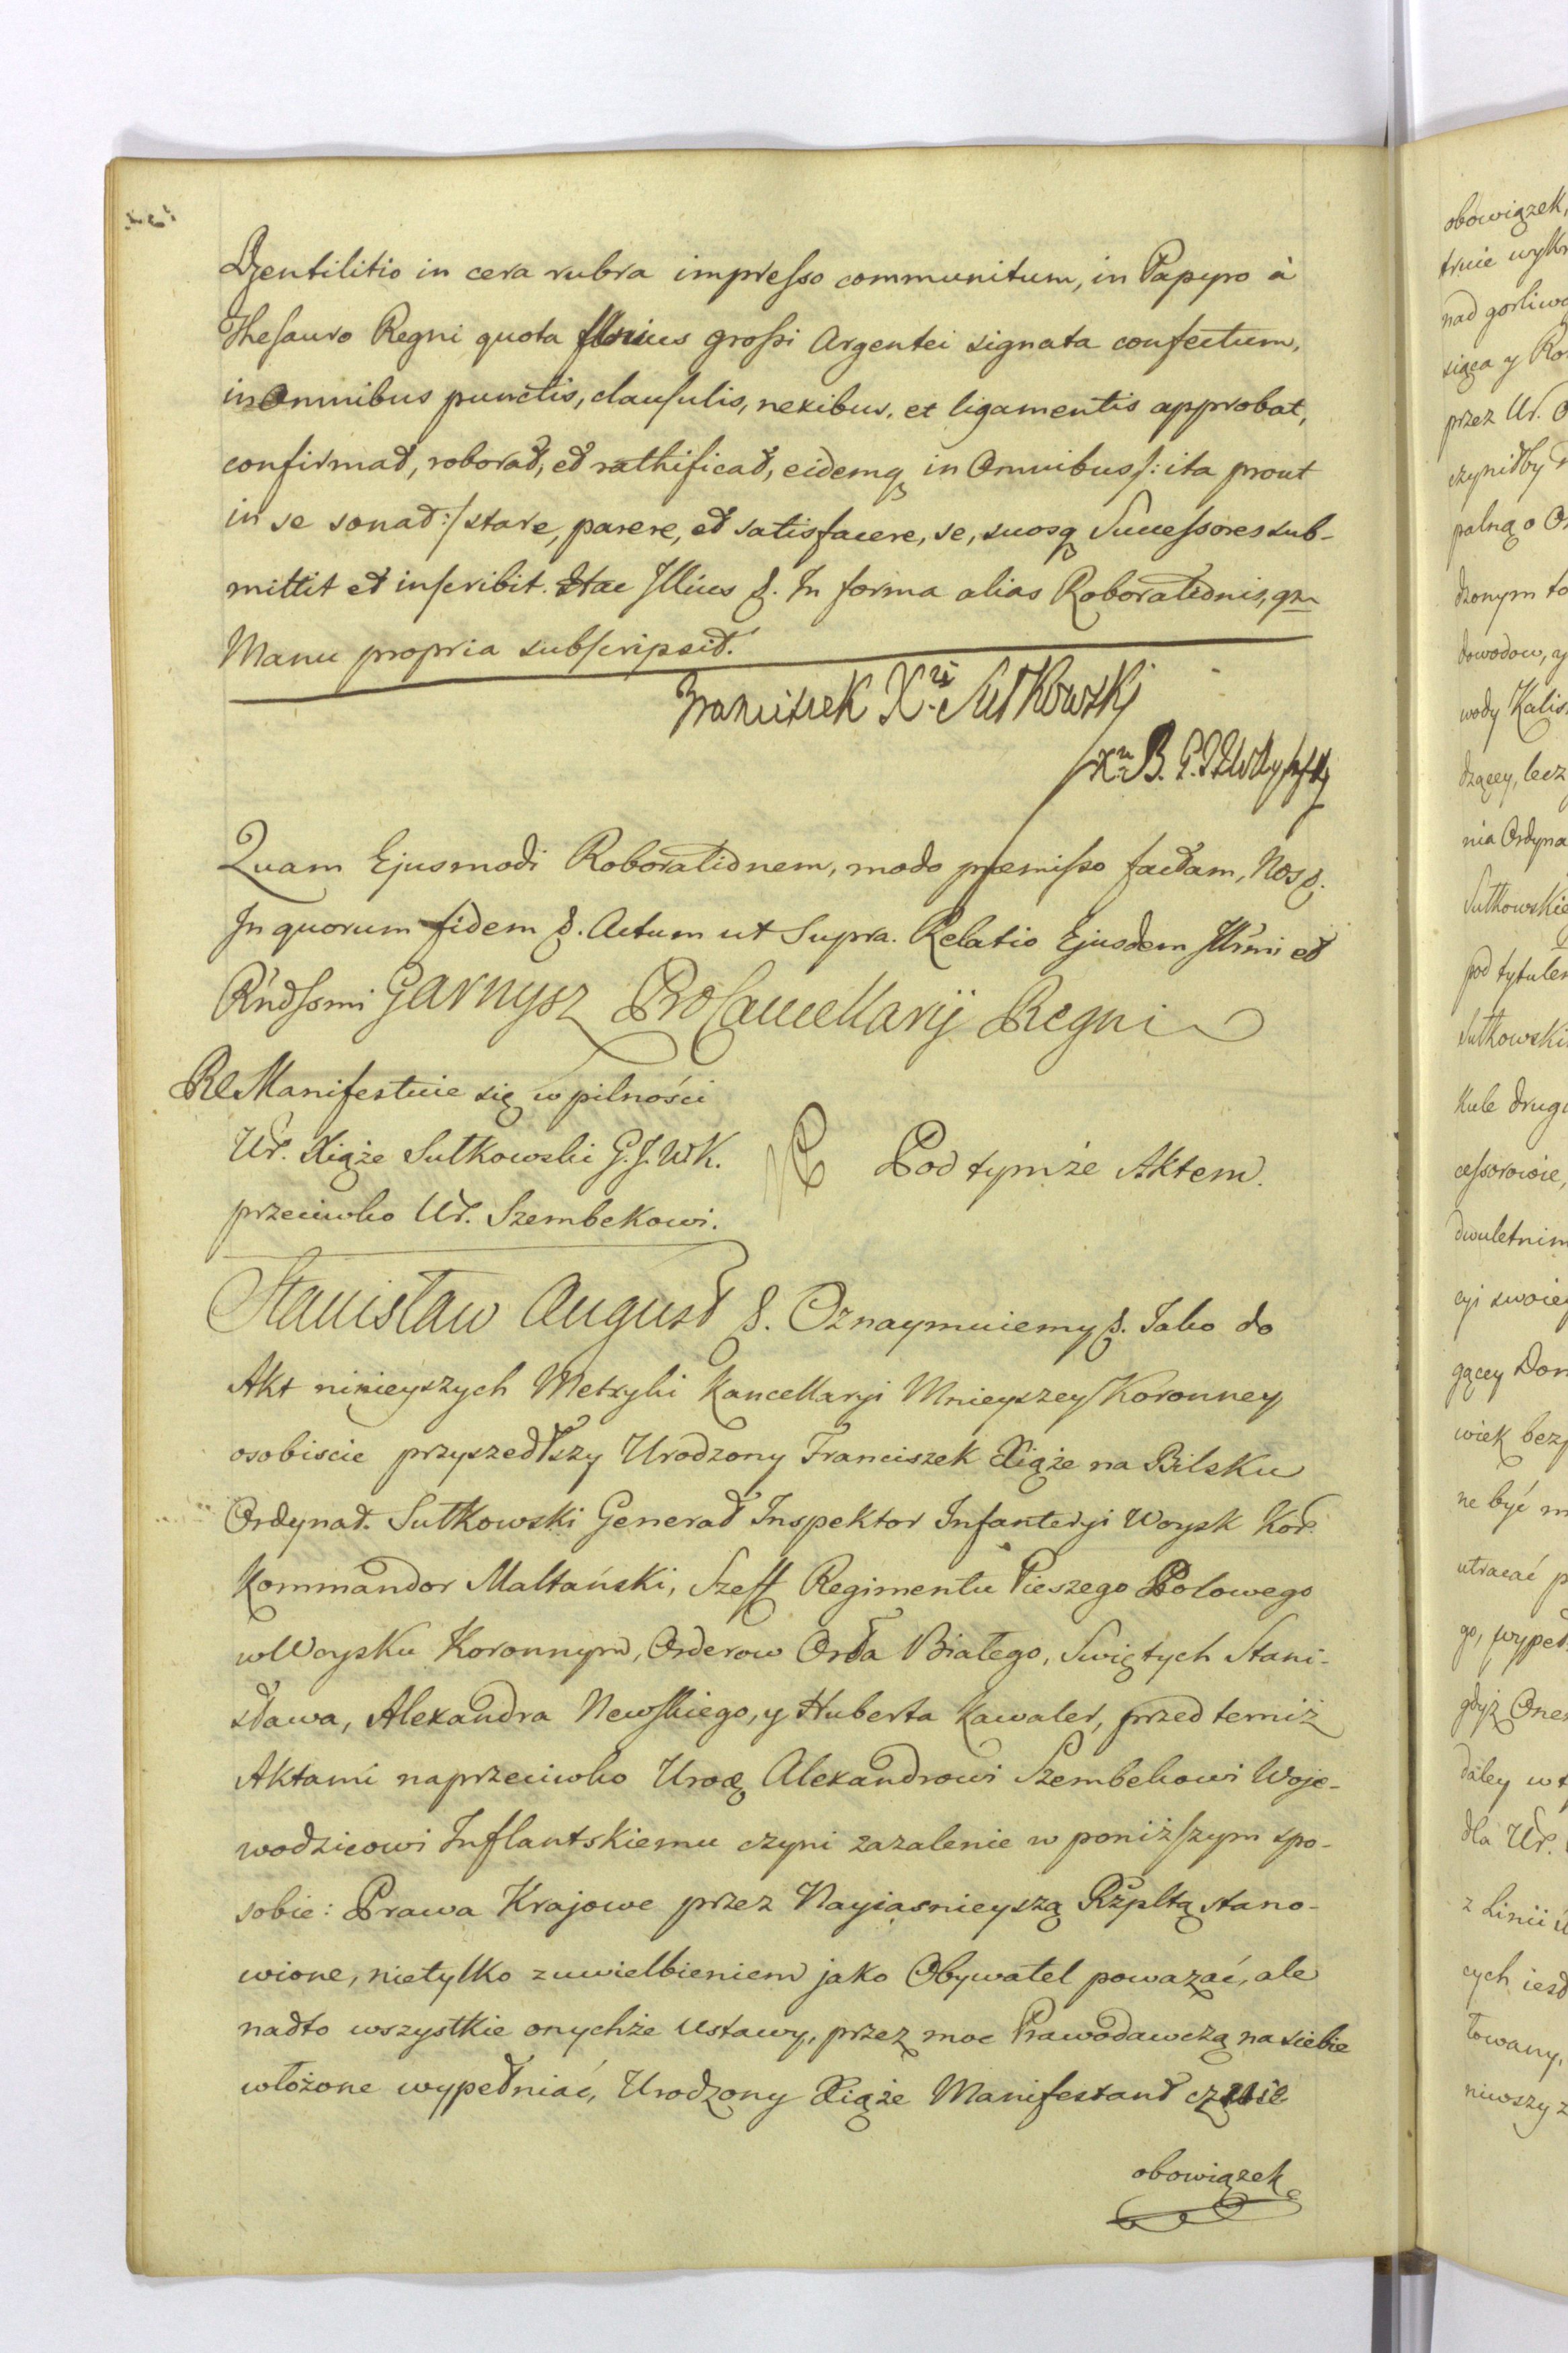 Gentilitio in cera rubra impresso communitum, in Papyro à
Thesauro Regni quota unius grossi Argentei signata confectum,
in Omnibus punctis, clausulis, nexibus, et ligamentis approbat,
confirmat, roborat, et rathificat, eidemq in Omnibus /: ita prout
in se sonat :/ stare, parere, et satisfacere, se, suosq Successores sub-
mittit et inscribit. Hac Illius &. In forma alias Roborationis, qm
Manu propria subscripsit.
Franciszek X.że Sułkowski
Quam Ejusmodi Roborationem, modo præmisso factam, Nos &.
In quorum fidem &. Actum ut Supra. Relatio Ejusdem Illmi et
Rndssmi Garnysz ProCancellarij Regni
ReManifestuie się w pilności
Ur. Xiąże Sułkowski G. J. W K.
przeciwko Ur. Szembekowi.
Pod tymże Aktem.
Stanisław August &. Oznaymuiemy &. Jako do
Akt ninieyszych Metryki Kancellaryi Mnieyszey Koronney
osobiscie przyszedłszy Urodzony Franciszek Xiąże na Bilsku
Ordynat. Sułkowski Generał Inspektor Infanteryi Woysk Kor.
Kommandor Maltański, Szeff Regimentu Pieszego Polowego
w Woysku Koronnym, Orderow Orła Białego, Swiętych Stani-
sława, Alexandra Newskiego, y Huberta Kawaler, przed temiż
Aktami naprzeciwko Urodz Alexandrowi Szembekowi Woje-
wodzicowi Inflantskiemu czyni zażalenie w poniższym spo-
sobie: Prawa Krajowe przez Nayiasnieyszą Rzpltą stano-
wione, nietylko z uwielbieniem jako Obywatel poważać, ale
nadto wszystkie onychże Ustawy, przez moc Prawodawczą na siebie
włożone wypełniać, Urodzony Xiąże Manifestant czuie
obowiązek
obowiązek,
nad gorliwo
przez Ur. O
czyniłby
palną o Or
dzonym to
dowodow, y
wody Kalis
dzącey, lecz
nia Ordyna
Sułkowskie
pod tytułem
Sułkowski
kule drugi
cessorowie,
dwuletnim
cyi swoiey
gącey Dom
wiek bezp
ne być m
utracać p
go, wypeł
gdyż One
daley w t
dla Ur.
z Linii
cych iest
towany,
niwszy z